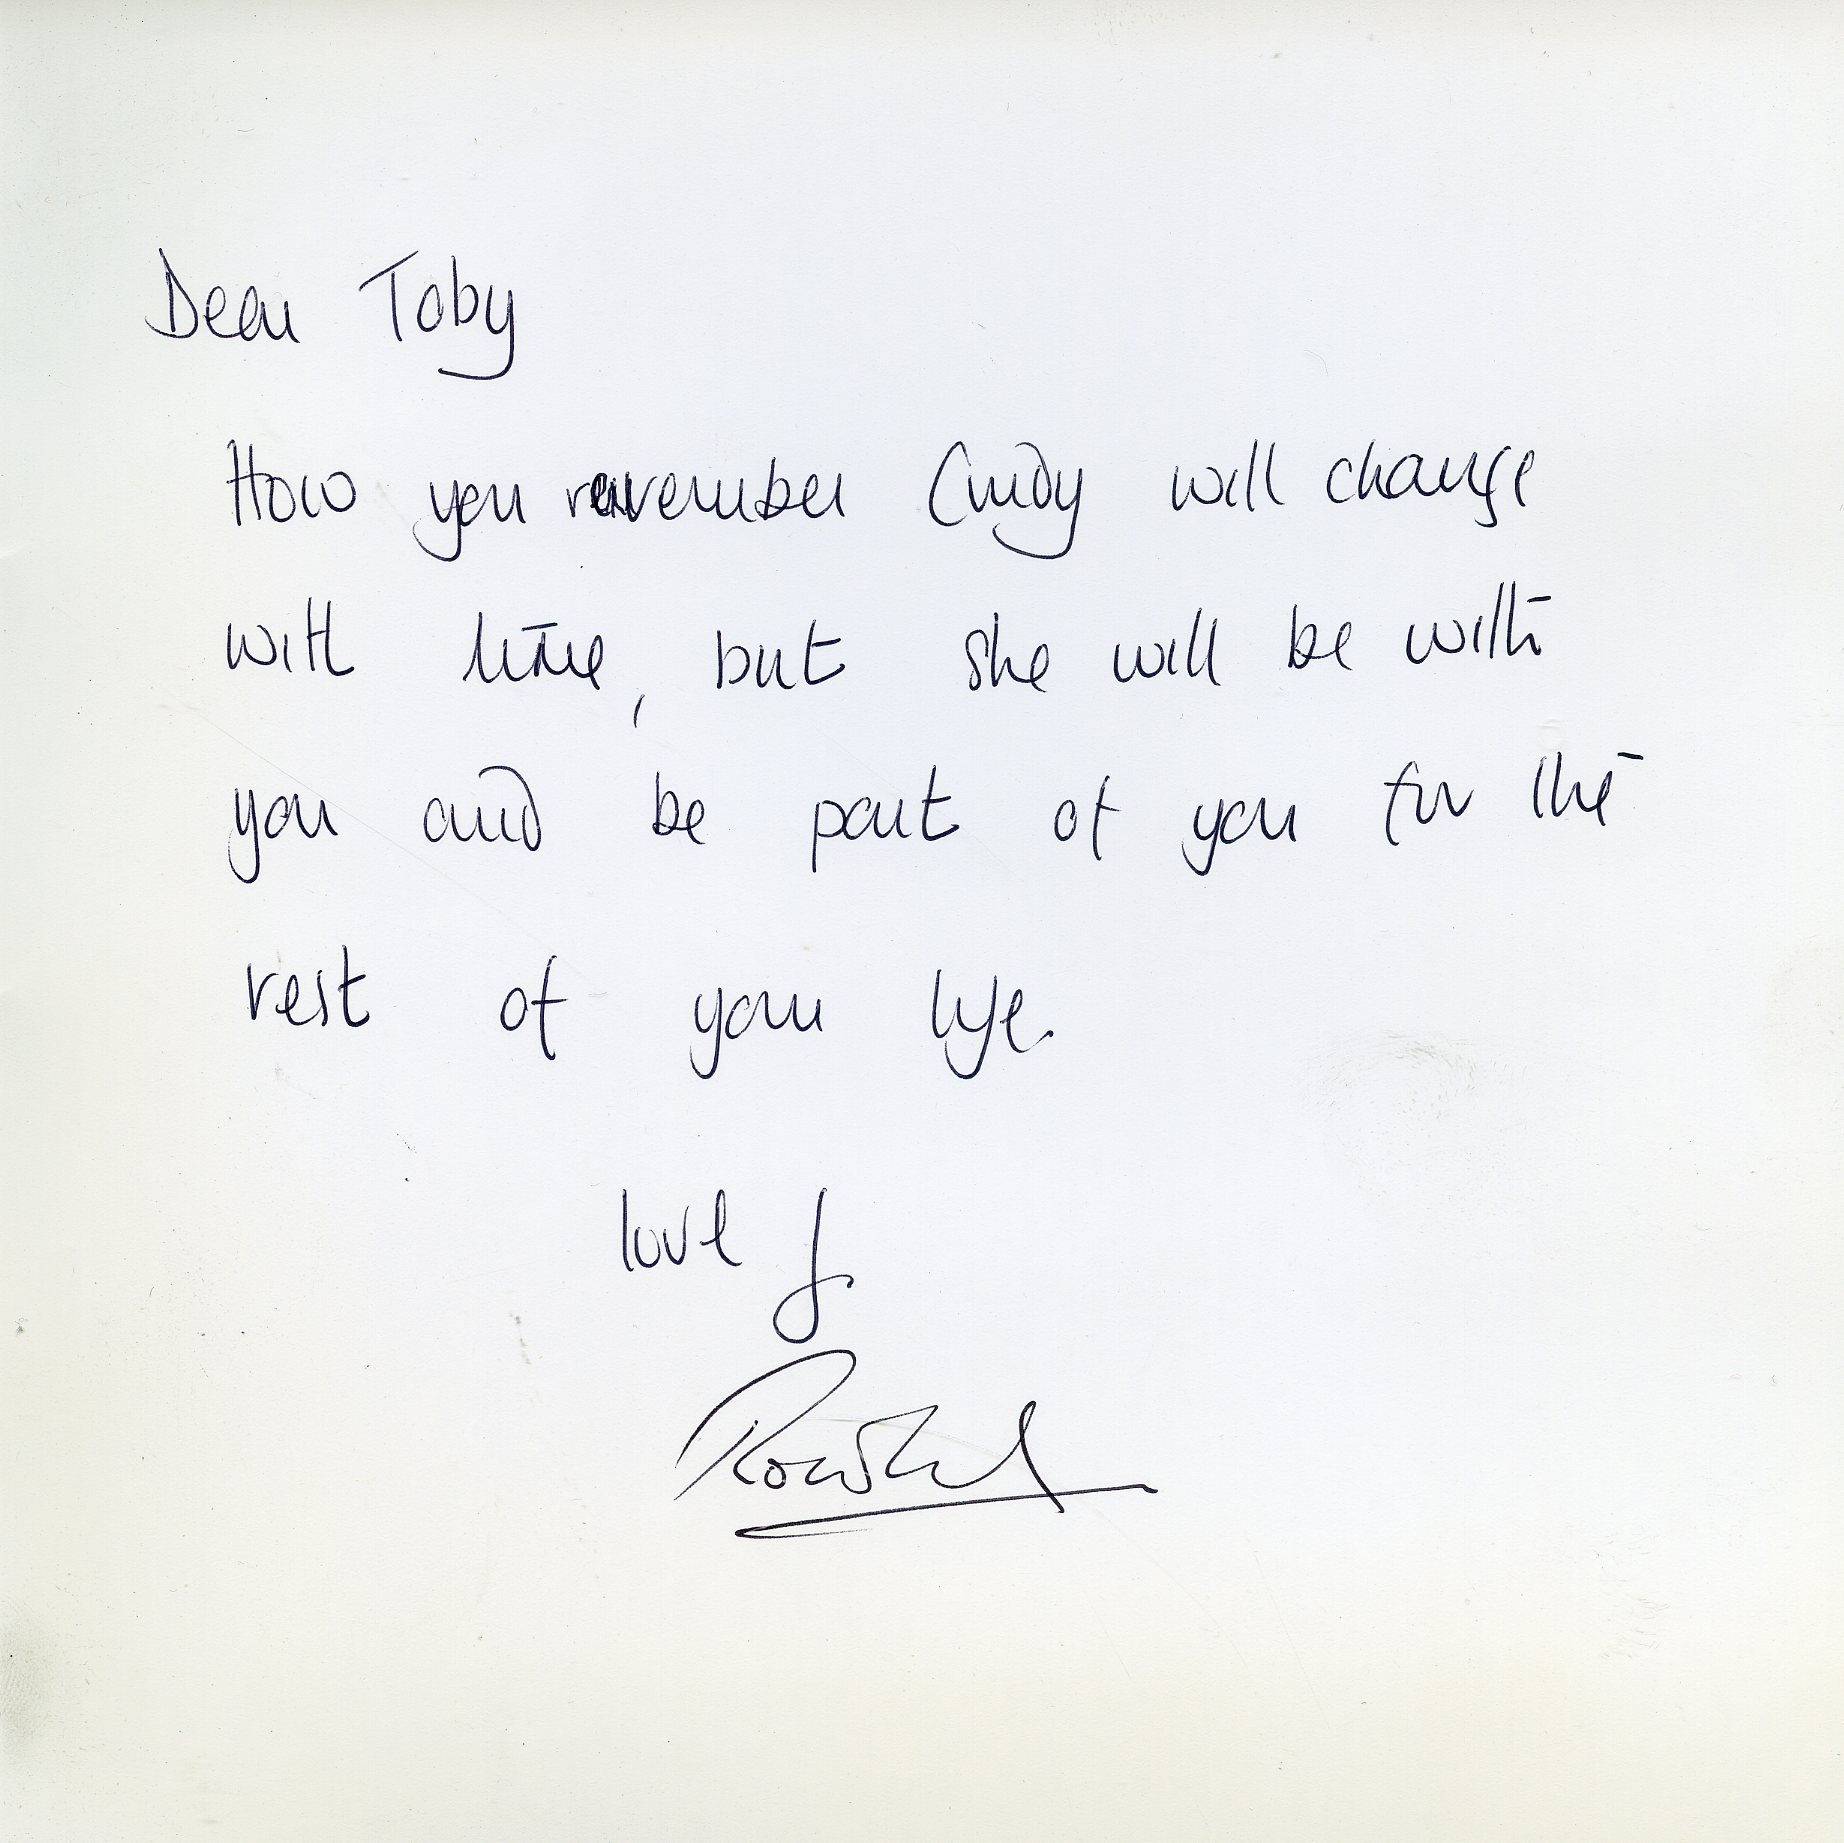 Dear Toby
How you remember Cindy will change
with time, but she will be with
you and be part of you for the
rest of your life.
love